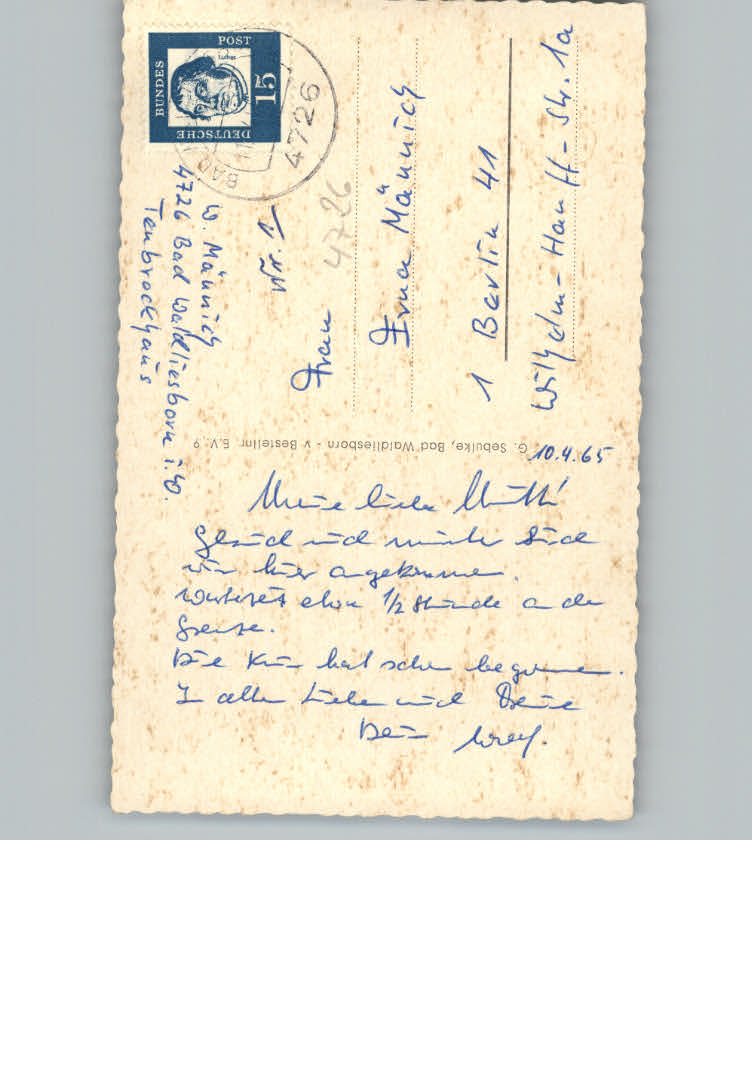 DEUTSCHE
BUNDES
POST
15
Luther
BAD
4726
W. Männich
4726 Bad Waldliesborn i.W.
Tenbrockhaus
Nr. 1
4726
Frau
Erna Männich
1 Berlin 41
Wilhelm-Hauff-Str. 1a
G. Sebulke, Bad Waldliesborn - V Bestellnr. E.V. 9
10.4.65
Meine liebe Mutti!
Gesund und munter sind
wir hier angekommen.
Wartezeit etwa 1/2 Stunde an der
Grenze.
Die Kur hat schon begonnen.
In aller Liebe und
Dein